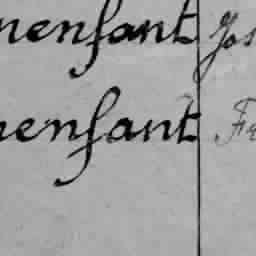 nenfant Jos
nenfant Fr